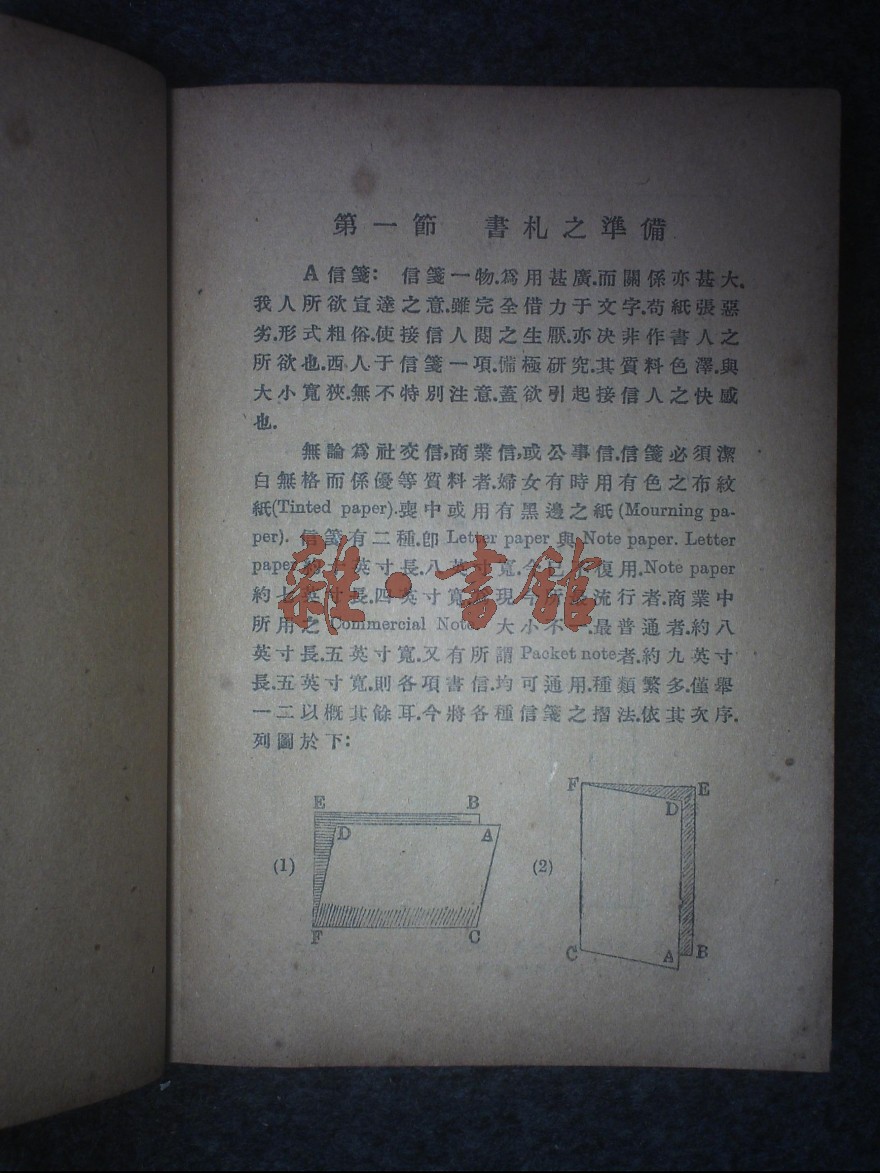 第一節 書札之準備
A 信箋： 信箋一物．爲用甚廣．而關係亦甚大．
我人所欲宣達之意．雖完全借力于文字．苟紙張惡
劣．形式粗俗．使接信人閱之生厭．亦决非作書人之
所欲也．西人于信箋一項．備極研究．其質料色澤．與
大小寬狹．無不特別注意．蓋欲引起接信人之快感
也．
無論爲社交信，商業信，或公事信．信箋必須潔
白無格而係優等質料者．婦女有時用有色之布紋
紙(Tinted paper)．喪中或用有黑邊之紙(Mourning pa-
per)． 信箋有二種．即 Letter paper 與 Note paper. Letter
paper 約十英寸長．八英寸寬．今已不復用．Note paper
約七英寸長．四英寸寬．爲現今所最流行者．商業中
所用之 Commercial Note．大小不一．最普通者．約八
英寸長．五英寸寬．又有所謂 Packet note者．約九英寸
長．五英寸寬．則各項書信．均可通用．種類繁多．僅舉
一二以概其餘耳．今將各種信箋之摺法．依其次序．
列圖於下：
(1)
E B
D A
F C
(2)
F E
D
C A B
雜·書館